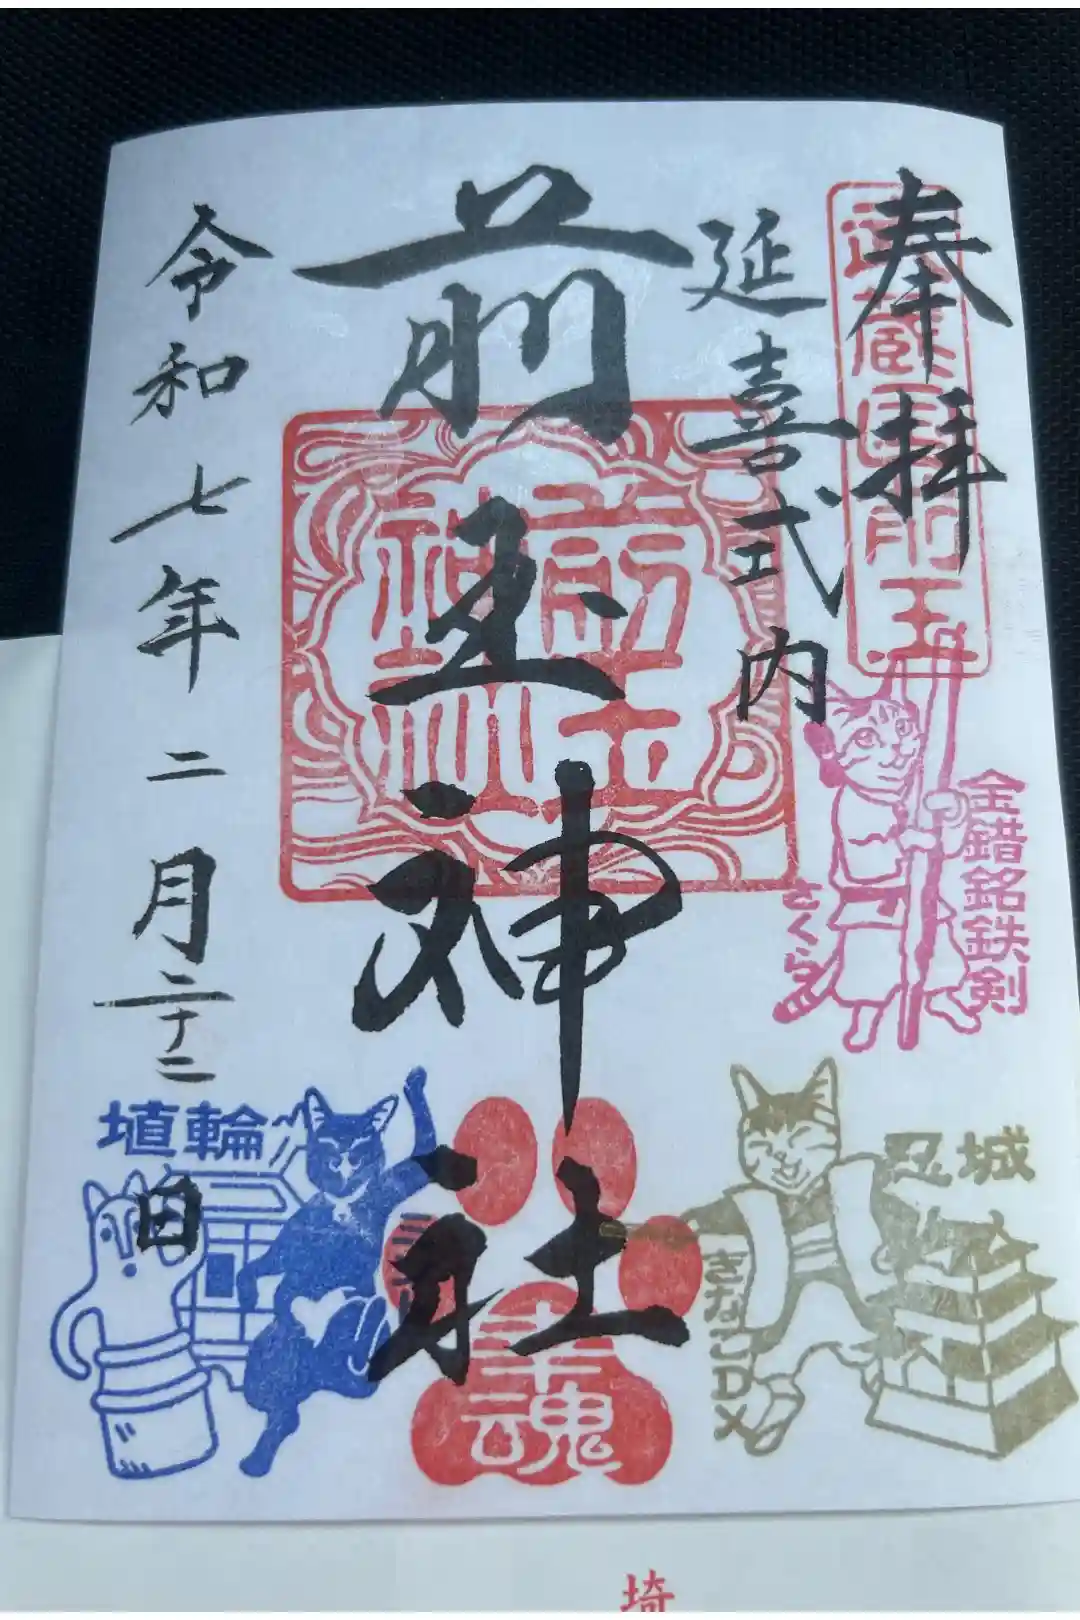 奉拝
武蔵国前玉
延喜式内
前玉神社
前玉神社
令和七年二月二十二日
金錯銘鉄剣
さくら
忍城
きなこDX
埴輪
幸魂
埼